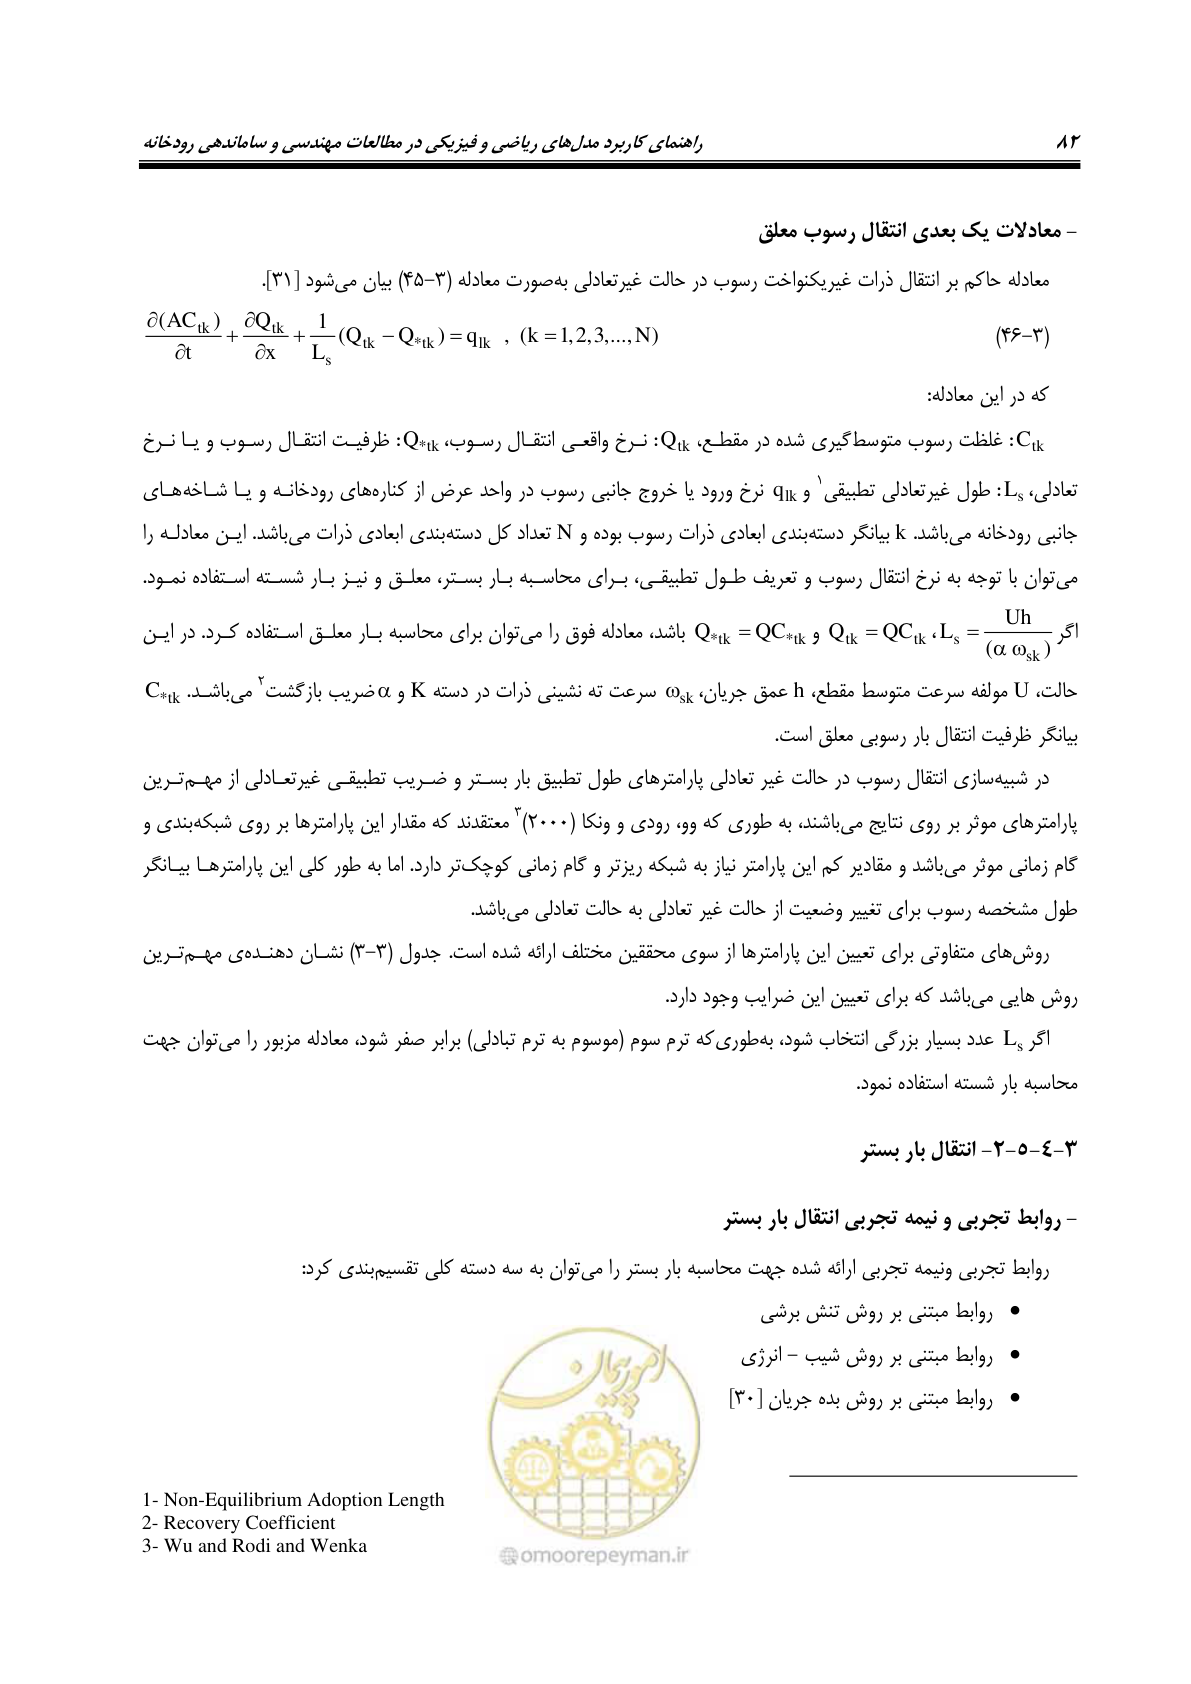 ۸۲ راهنمای کاربرد مدل‌های ریاضی و فیزیکی در مطالعات مهندسی و ساماندهی رودخانه
- معادلات یک بعدی انتقال رسوب معلق
معادله حاکم بر انتقال ذرات غیریکنواخت رسوب در حالت غیرتعادلی به‌صورت معادله (۳-۴۵) بیان می‌شود [۳۱].
(۳-۴۶) ∂(AC_tk)/∂t + ∂Q_tk/∂x + 1/L_s (Q_tk − Q_*tk) = q_lk , (k = 1,2,3,...,N)
که در این معادله:
C_tk: غلظت رسوب متوسط‌گیری شده در مقطع، Q_tk: نرخ واقعی انتقال رسوب، Q_*tk: ظرفیت انتقال رسوب و یا نرخ
تعادلی، L_s: طول غیرتعادلی تطبیقی۱ و q_lk نرخ ورود یا خروج جانبی رسوب در واحد عرض از کناره‌های رودخانه و یا شاخه‌های
جانبی رودخانه می‌باشد. k بیانگر دسته‌بندی ابعادی ذرات رسوب بوده و N تعداد کل دسته‌بندی ابعادی ذرات می‌باشد. این معادله را
می‌توان با توجه به نرخ انتقال رسوب و تعریف طول تطبیقی، برای محاسبه بار بستر، معلق و نیز بار شسته استفاده نمود.
اگر L_s = Uh/(α ω_sk)، Q_tk = QC_tk و Q_*tk = QC_*tk باشد، معادله فوق را می‌توان برای محاسبه بار معلق استفاده کرد. در این
حالت، U مولفه سرعت متوسط مقطع، h عمق جریان، ω_sk سرعت ته نشینی ذرات در دسته K و α ضریب بازگشت۲ می‌باشد. C_*tk
بیانگر ظرفیت انتقال بار رسوبی معلق است.
در شبیه‌سازی انتقال رسوب در حالت غیر تعادلی پارامترهای طول تطبیق بار بستر و ضریب تطبیقی غیرتعادلی از مهم‌ترین
پارامترهای موثر بر روی نتایج می‌باشند، به طوری که وو، رودی و ونکا (۲۰۰۰)۳ معتقدند که مقدار این پارامترها بر روی شبکه‌بندی و
گام زمانی موثر می‌باشد و مقادیر کم این پارامتر نیاز به شبکه ریزتر و گام زمانی کوچک‌تر دارد. اما به طور کلی این پارامترها بیانگر
طول مشخصه رسوب برای تغییر وضعیت از حالت غیر تعادلی به حالت تعادلی می‌باشد.
روش‌های متفاوتی برای تعیین این پارامترها از سوی محققین مختلف ارائه شده است. جدول (۳-۳) نشان دهنده‌ی مهم‌ترین
روش هایی می‌باشد که برای تعیین این ضرایب وجود دارد.
اگر L_s عدد بسیار بزرگی انتخاب شود، به‌طوری‌که ترم سوم (موسوم به ترم تبادلی) برابر صفر شود، معادله مزبور را می‌توان جهت
محاسبه بار شسته استفاده نمود.
۳-۴-۵-۲- انتقال بار بستر
- روابط تجربی و نیمه تجربی انتقال بار بستر
روابط تجربی ونیمه تجربی ارائه شده جهت محاسبه بار بستر را می‌توان به سه دسته کلی تقسیم‌بندی کرد:
• روابط مبتنی بر روش تنش برشی
• روابط مبتنی بر روش شیب – انرژی
• روابط مبتنی بر روش بده جریان [۳۰]
امور پیمان
1- Non-Equilibrium Adoption Length
2- Recovery Coefficient
3- Wu and Rodi and Wenka
@omoorepeyman.ir